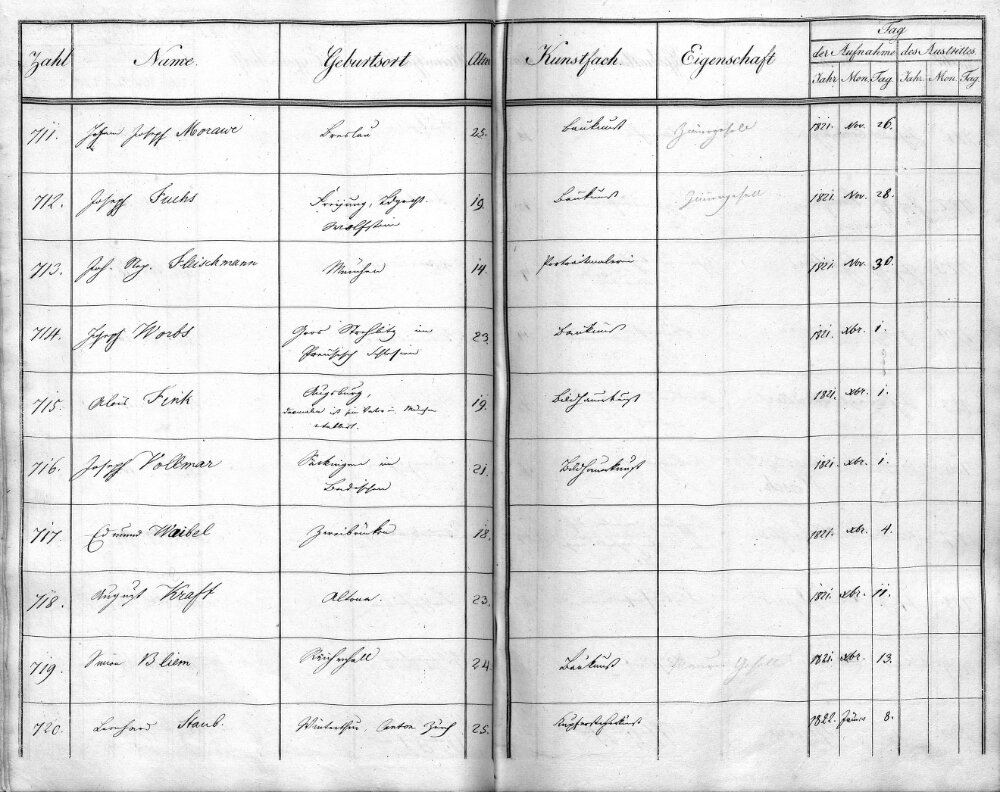 Tag
Zahl Name. Geburtsort Alter Kunstfach. Eigenschaft der Aufnahme des Austrittes.
Jahr Mon. Tag Jahr. Mon. Tag.
711. Johann Joseph Morawe Breslau 25. Baukunst Zimergesell 1821. Nov. 26.
712. Joseph Fuchs Freyung, Ldgrcht. 19. Baukunst Zimergesell 1821. Nov 28.
Wolfstein
713. Joh. Nep. Fleischmann München 14. Portraitmalerei 1821. Nov 30.
714. Joseph Worbs Gros Strehlitz im 23. Baukunst 1821. xbr. 1.
Preußisch Schlesien
715. Alois Fink Augsburg, 19. Bildhauerkunst 1821. xbr. 1.
dermalen ist sein Vater in München
etablirt.
716. Joseph Vollmar Säckingen im 21. Bildhauerkunst 1821. xbr. 1.
Badischen
717. Edmund Weibel Zweibrücken 18. 1821. xbr. 4.
718. August Kraft Altona. 23. 1821. xbr. 11.
719. Simon Bliem Reichenhall 24. Baukunst Maurer Gesell 1821. xbr. 13.
720. Bernhard Staub. Winterthur, Canton Zürch 25. Kupferstecherkunst 1822. Jäner 8.